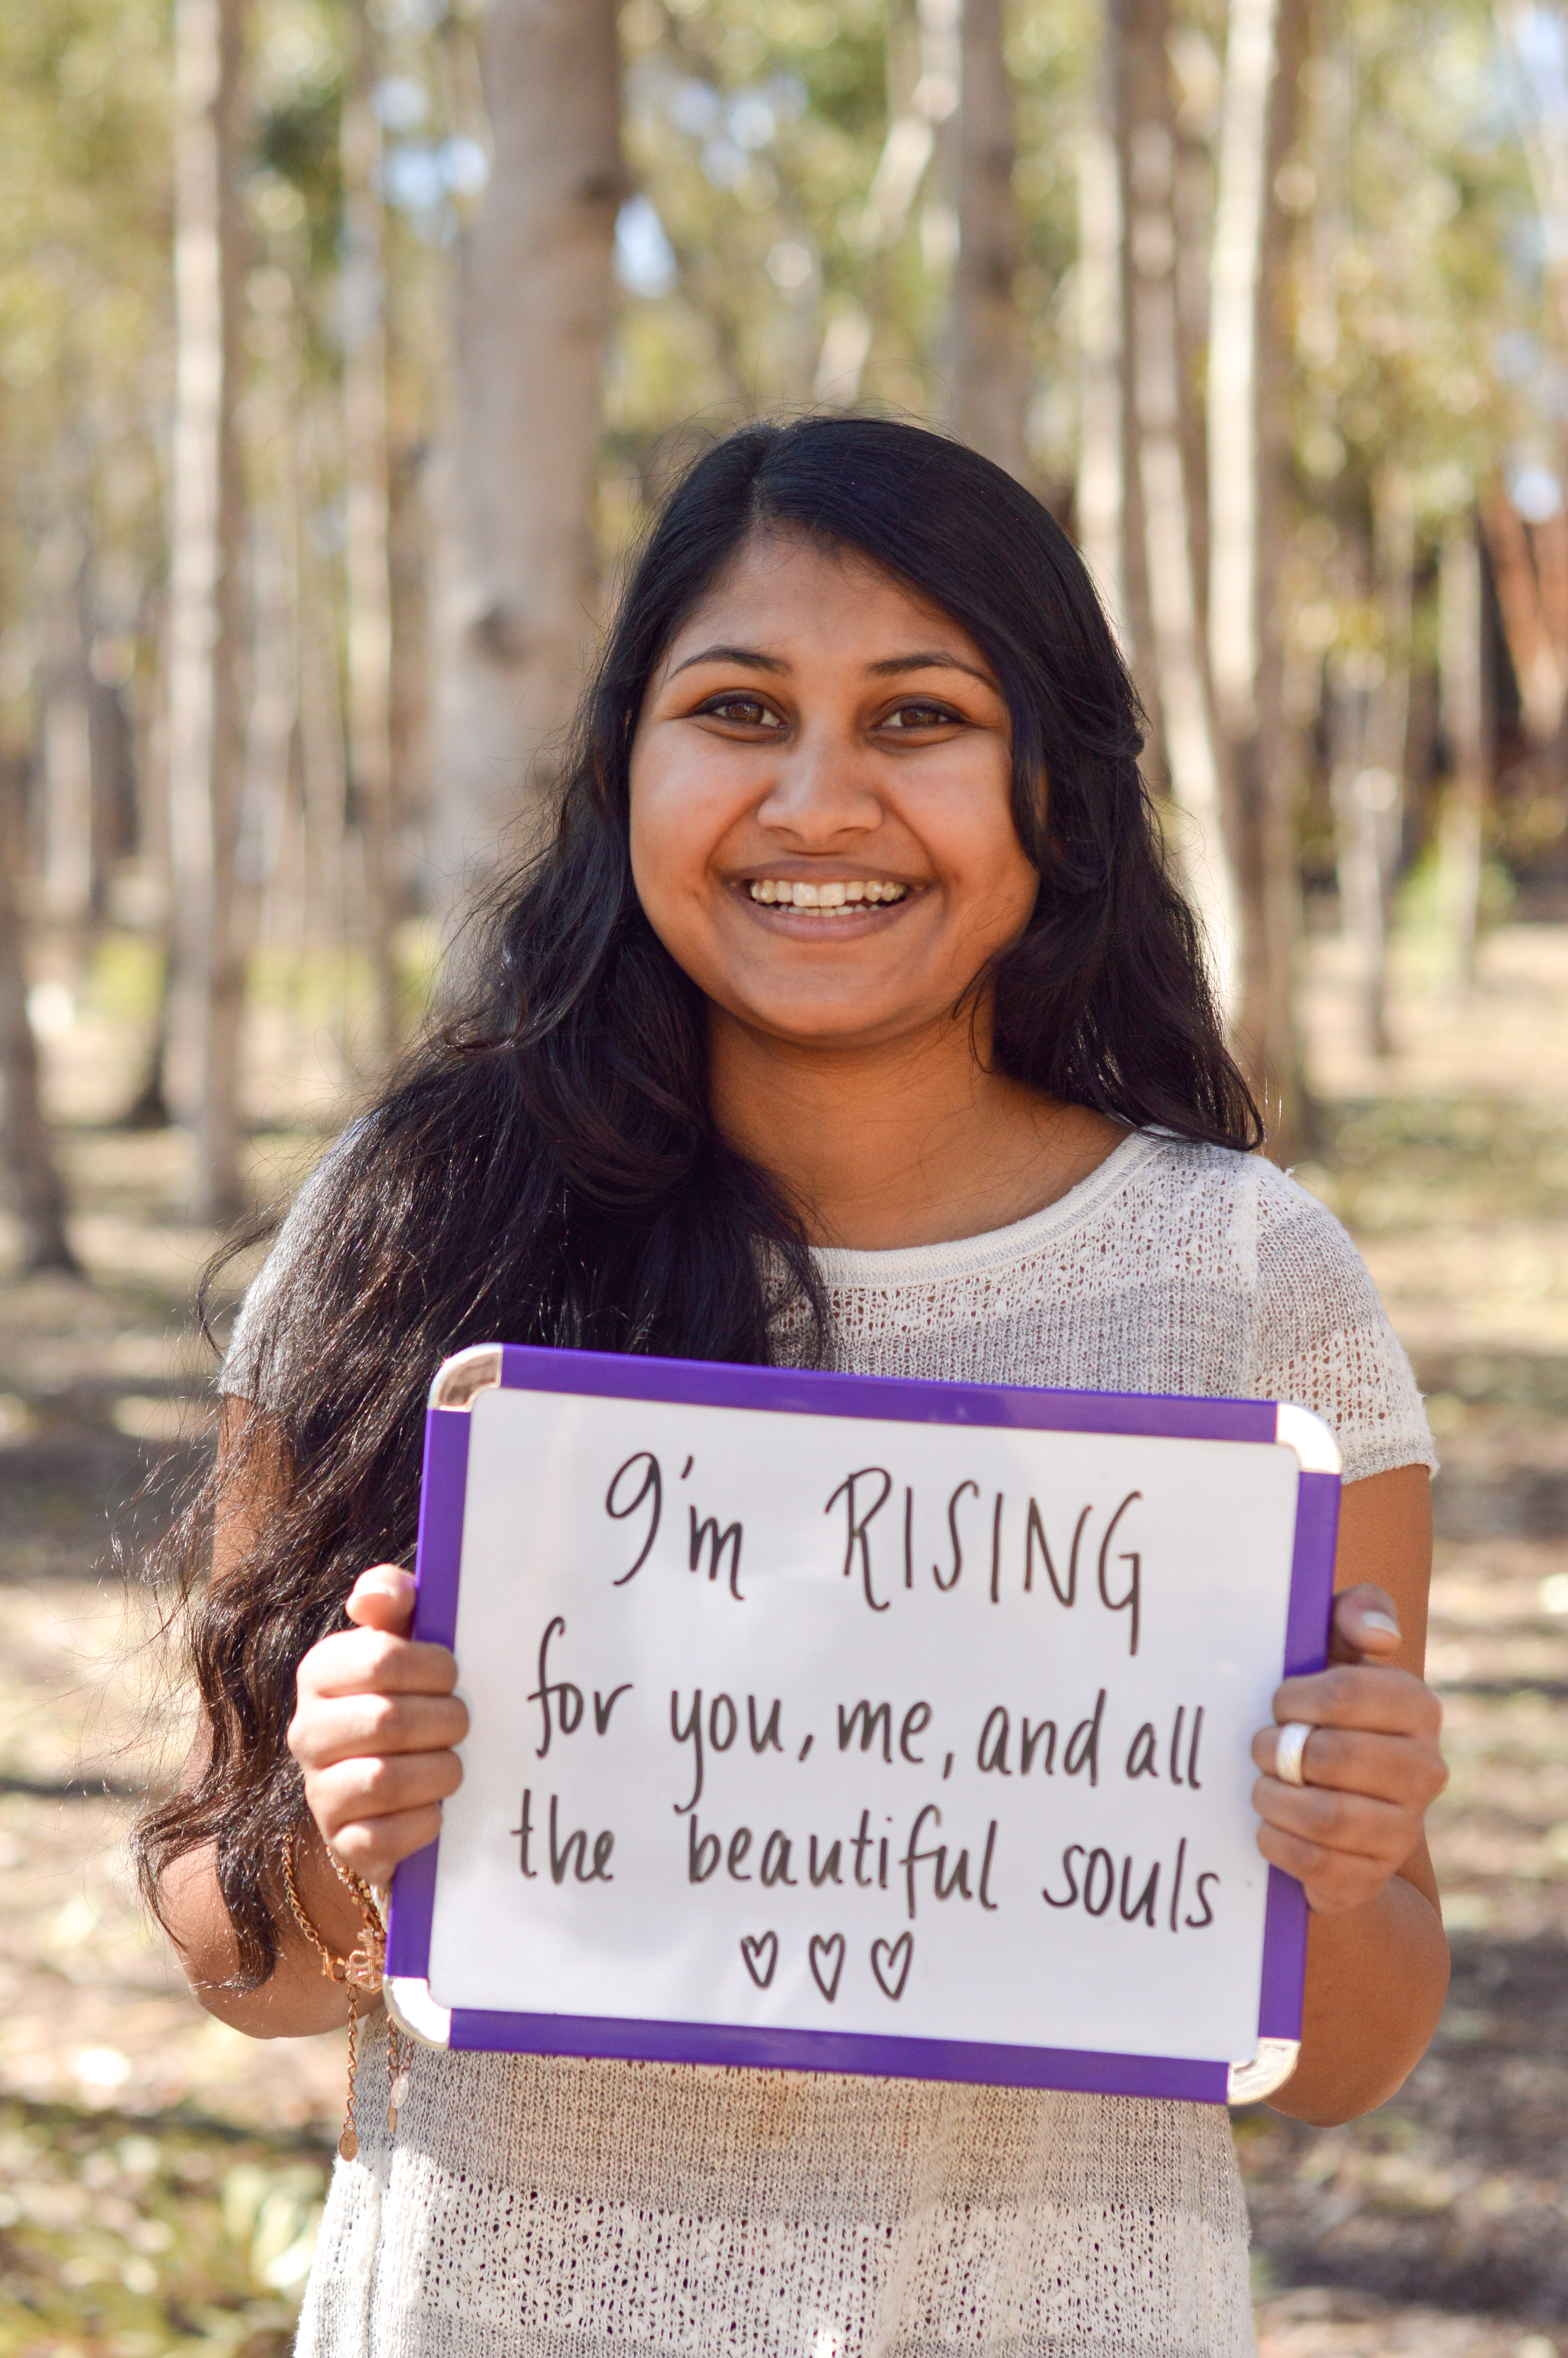 I'm RISING
for you, me, and all
the beautiful souls
♡♡♡